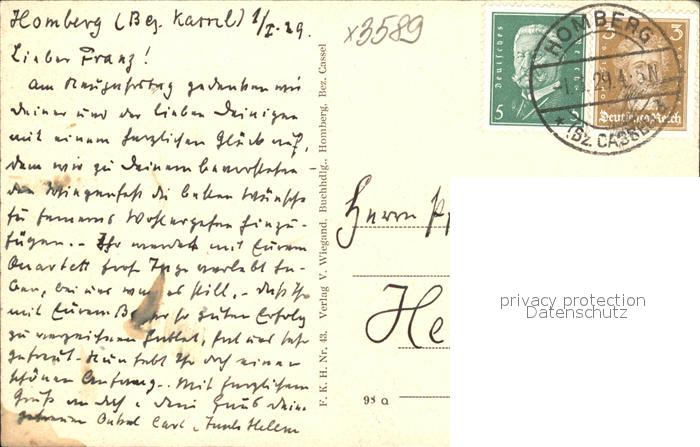 Homberg (Bez. Kassel) 1/I. 29.
x3589
Lieber Franz!
Am Neujahrstag gedenken wir
Deiner und der lieben Deinigen
mit einem herzlichen Glück auf,
dem wir zu Deinem bevorstehen-
den Wiegenfest die besten Wünsche
für ferneres Wohlergehen hinzu-
fügen. - Ihr werdet mit Eurem
Quartett frohe Tage verlebt ha-
ben, bei uns war es still. - Daß Ihr
mit Eurem so guten Erfolg
zu verzeichnen hattet, hat uns sehr
gefreut. Nun habt Ihr doch einen
schönen Anfang. - Mit herzlichem
Gruß an Dich, Dein
Onkel Carl, Tante Helene
F. K. H. Nr. 43. Verlag V. Wiegand, Buchhdlg., Homberg, Bez. Cassel
Deutsches Reich
5
3
Deutsches Reich
HOMBERG
29.4-5N
* (BZ. CASSEL)
Herrn
He
98 a
privacy protection
Datenschutz